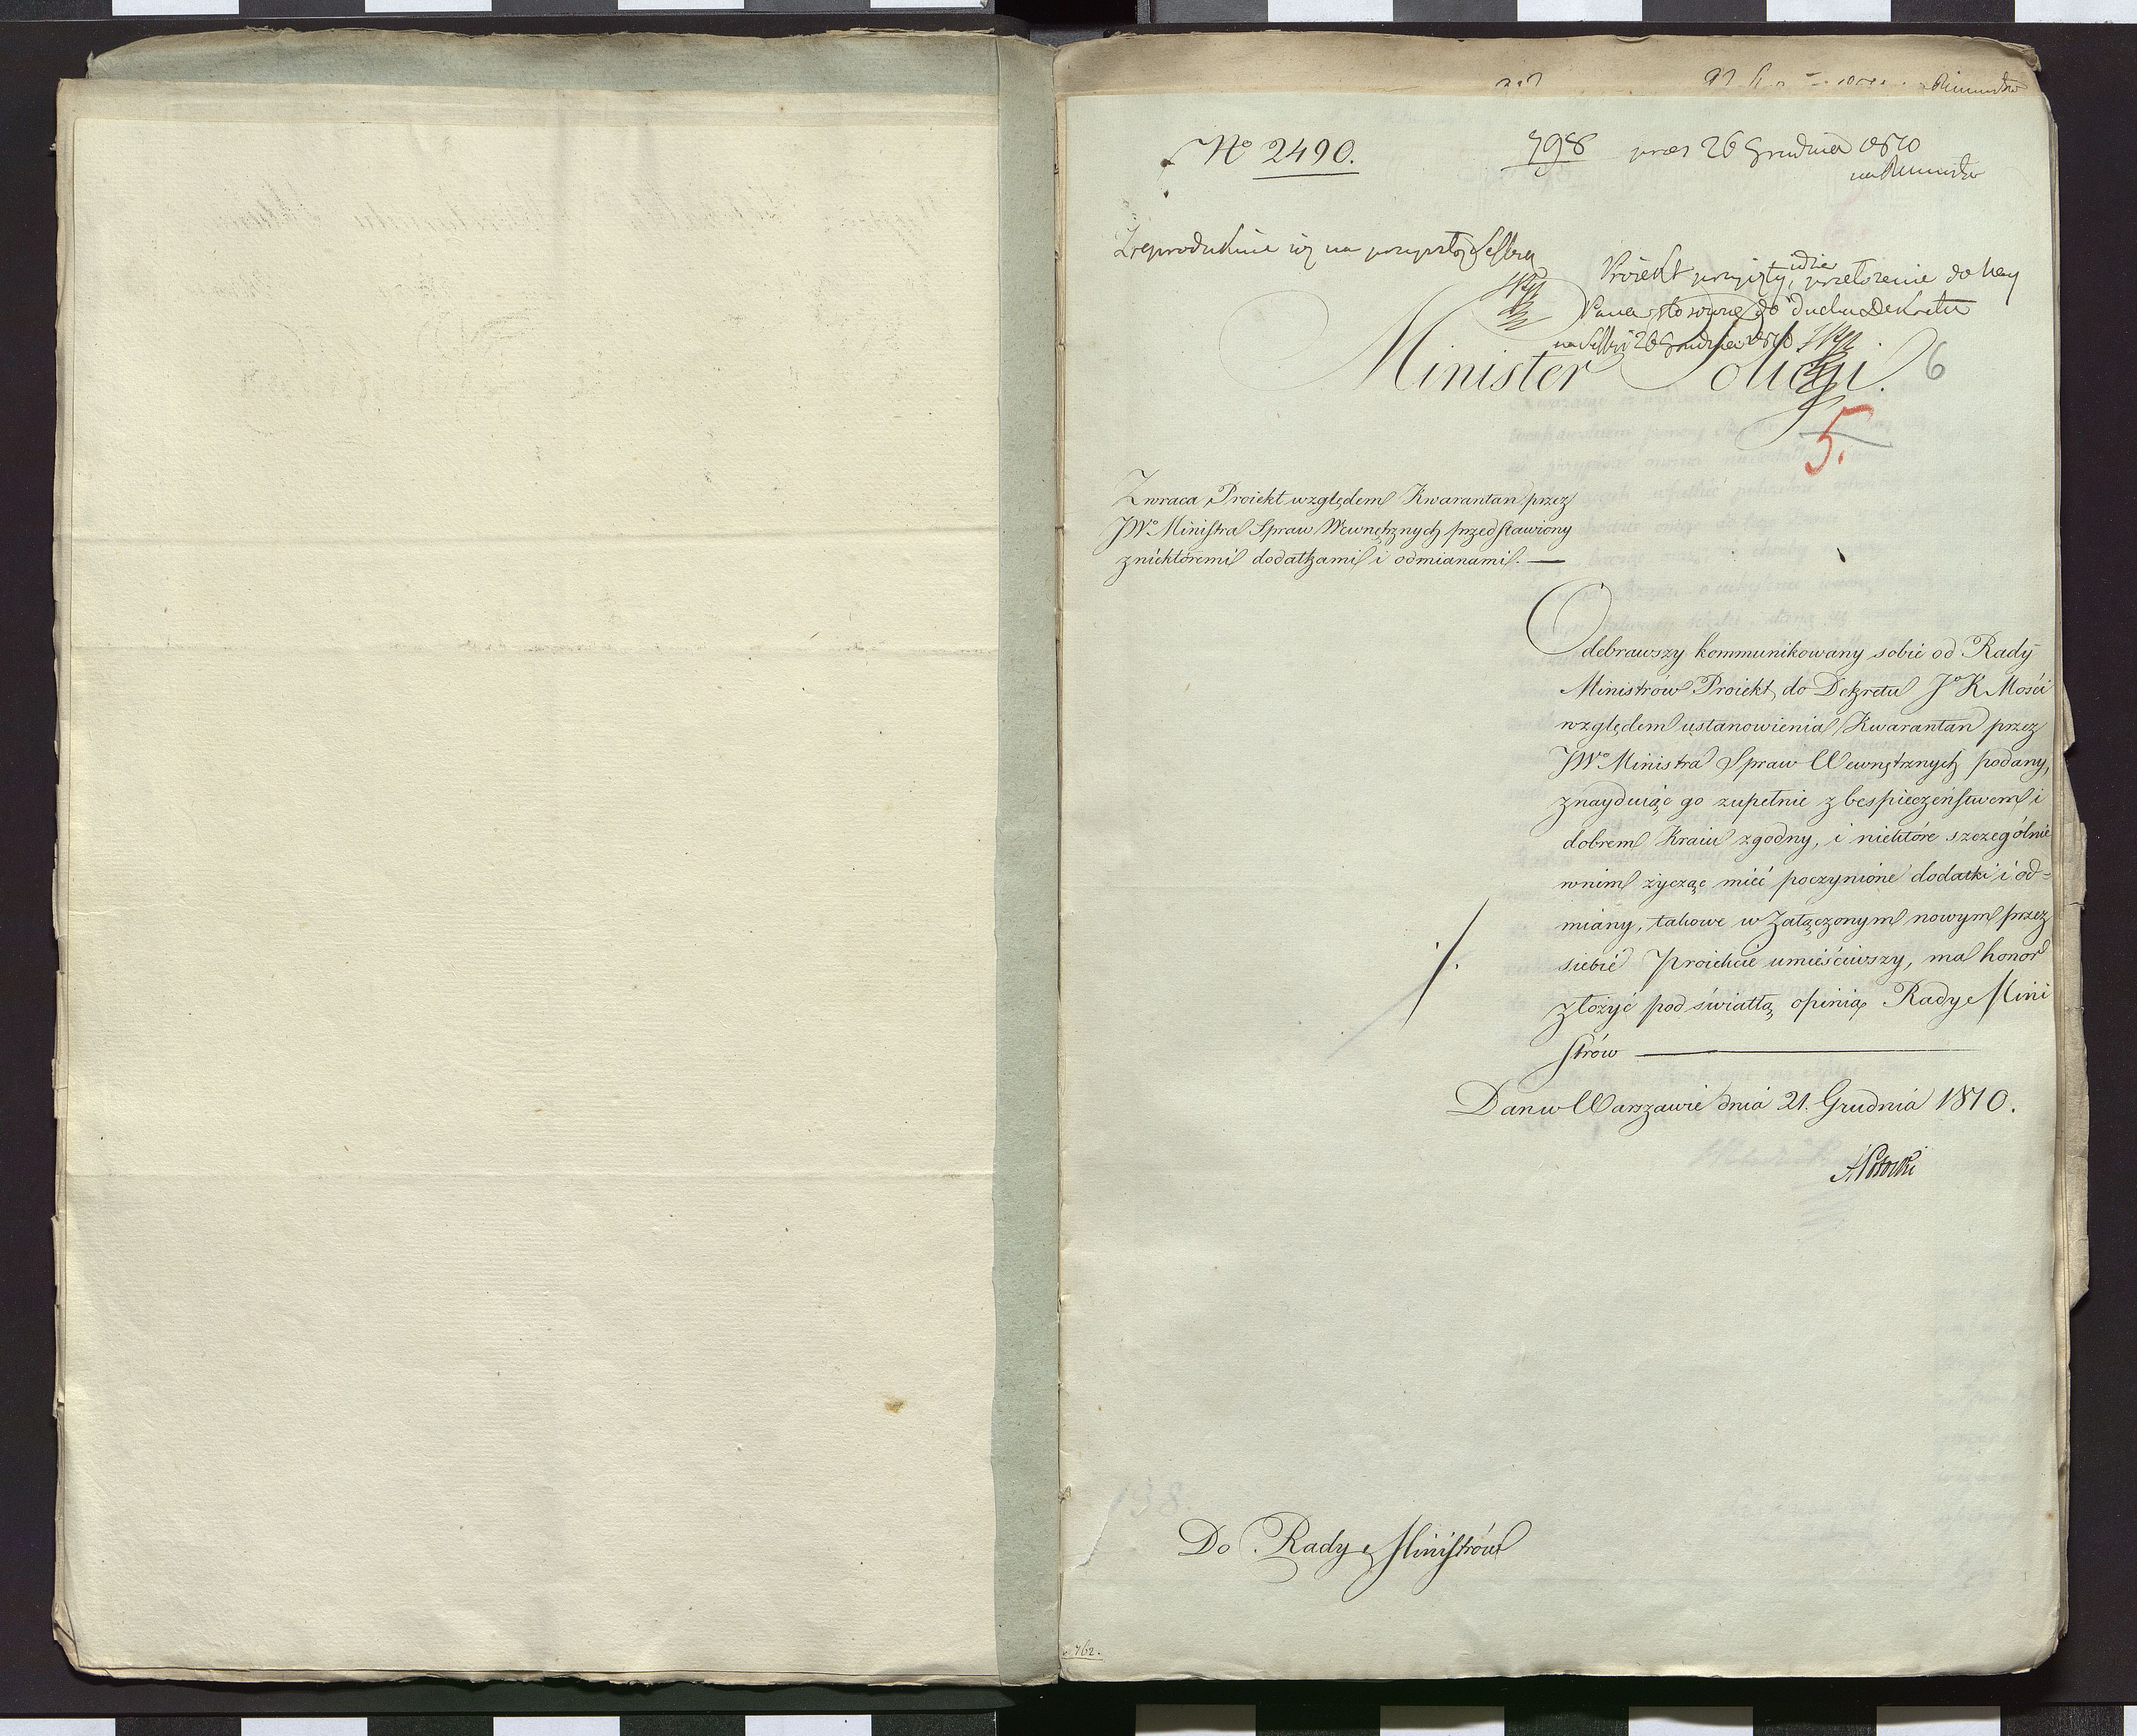 No 2490.
798 prez 26 Grudnia 1810
Zreprodukuie się na przyszłey Sessyi
Proiekt przyięty, idzie przełożenie do Nay
Pana stosownie do Duchu Dekretu
na Sessyi 26 Grudnia 1810
Minister Policyi.
6
5.
Zwraca Proiekt względem Kwarantan przez
JWo Ministra Spraw Wewnętrznych przedstawiony
z niektóremi dodatkami i odmianami. —
Odebrawszy kommunikowany sobie od Rady
Ministrów Proiekt do Dekretu Jo K Mości
względem ustanowienia Kwarantan przez
JWo Ministra Spraw Wewnętrznych podany,
znayduiąc go zupełnie z bespieczeństwem i
dobrem Kraiu zgodny, i niektóre szczególnie
w nim życząc mieć poczynione dodatki i od=
miany, takowe w załączonym nowym przez
siebie Proiekcie umieściwszy, ma honor
złożyć pod światłą opinią Rady Mini
strów —
Dan w Warszawie dnia 21. Grudnia 1810.
Potocki
138
Do Rady Ministrów
762.